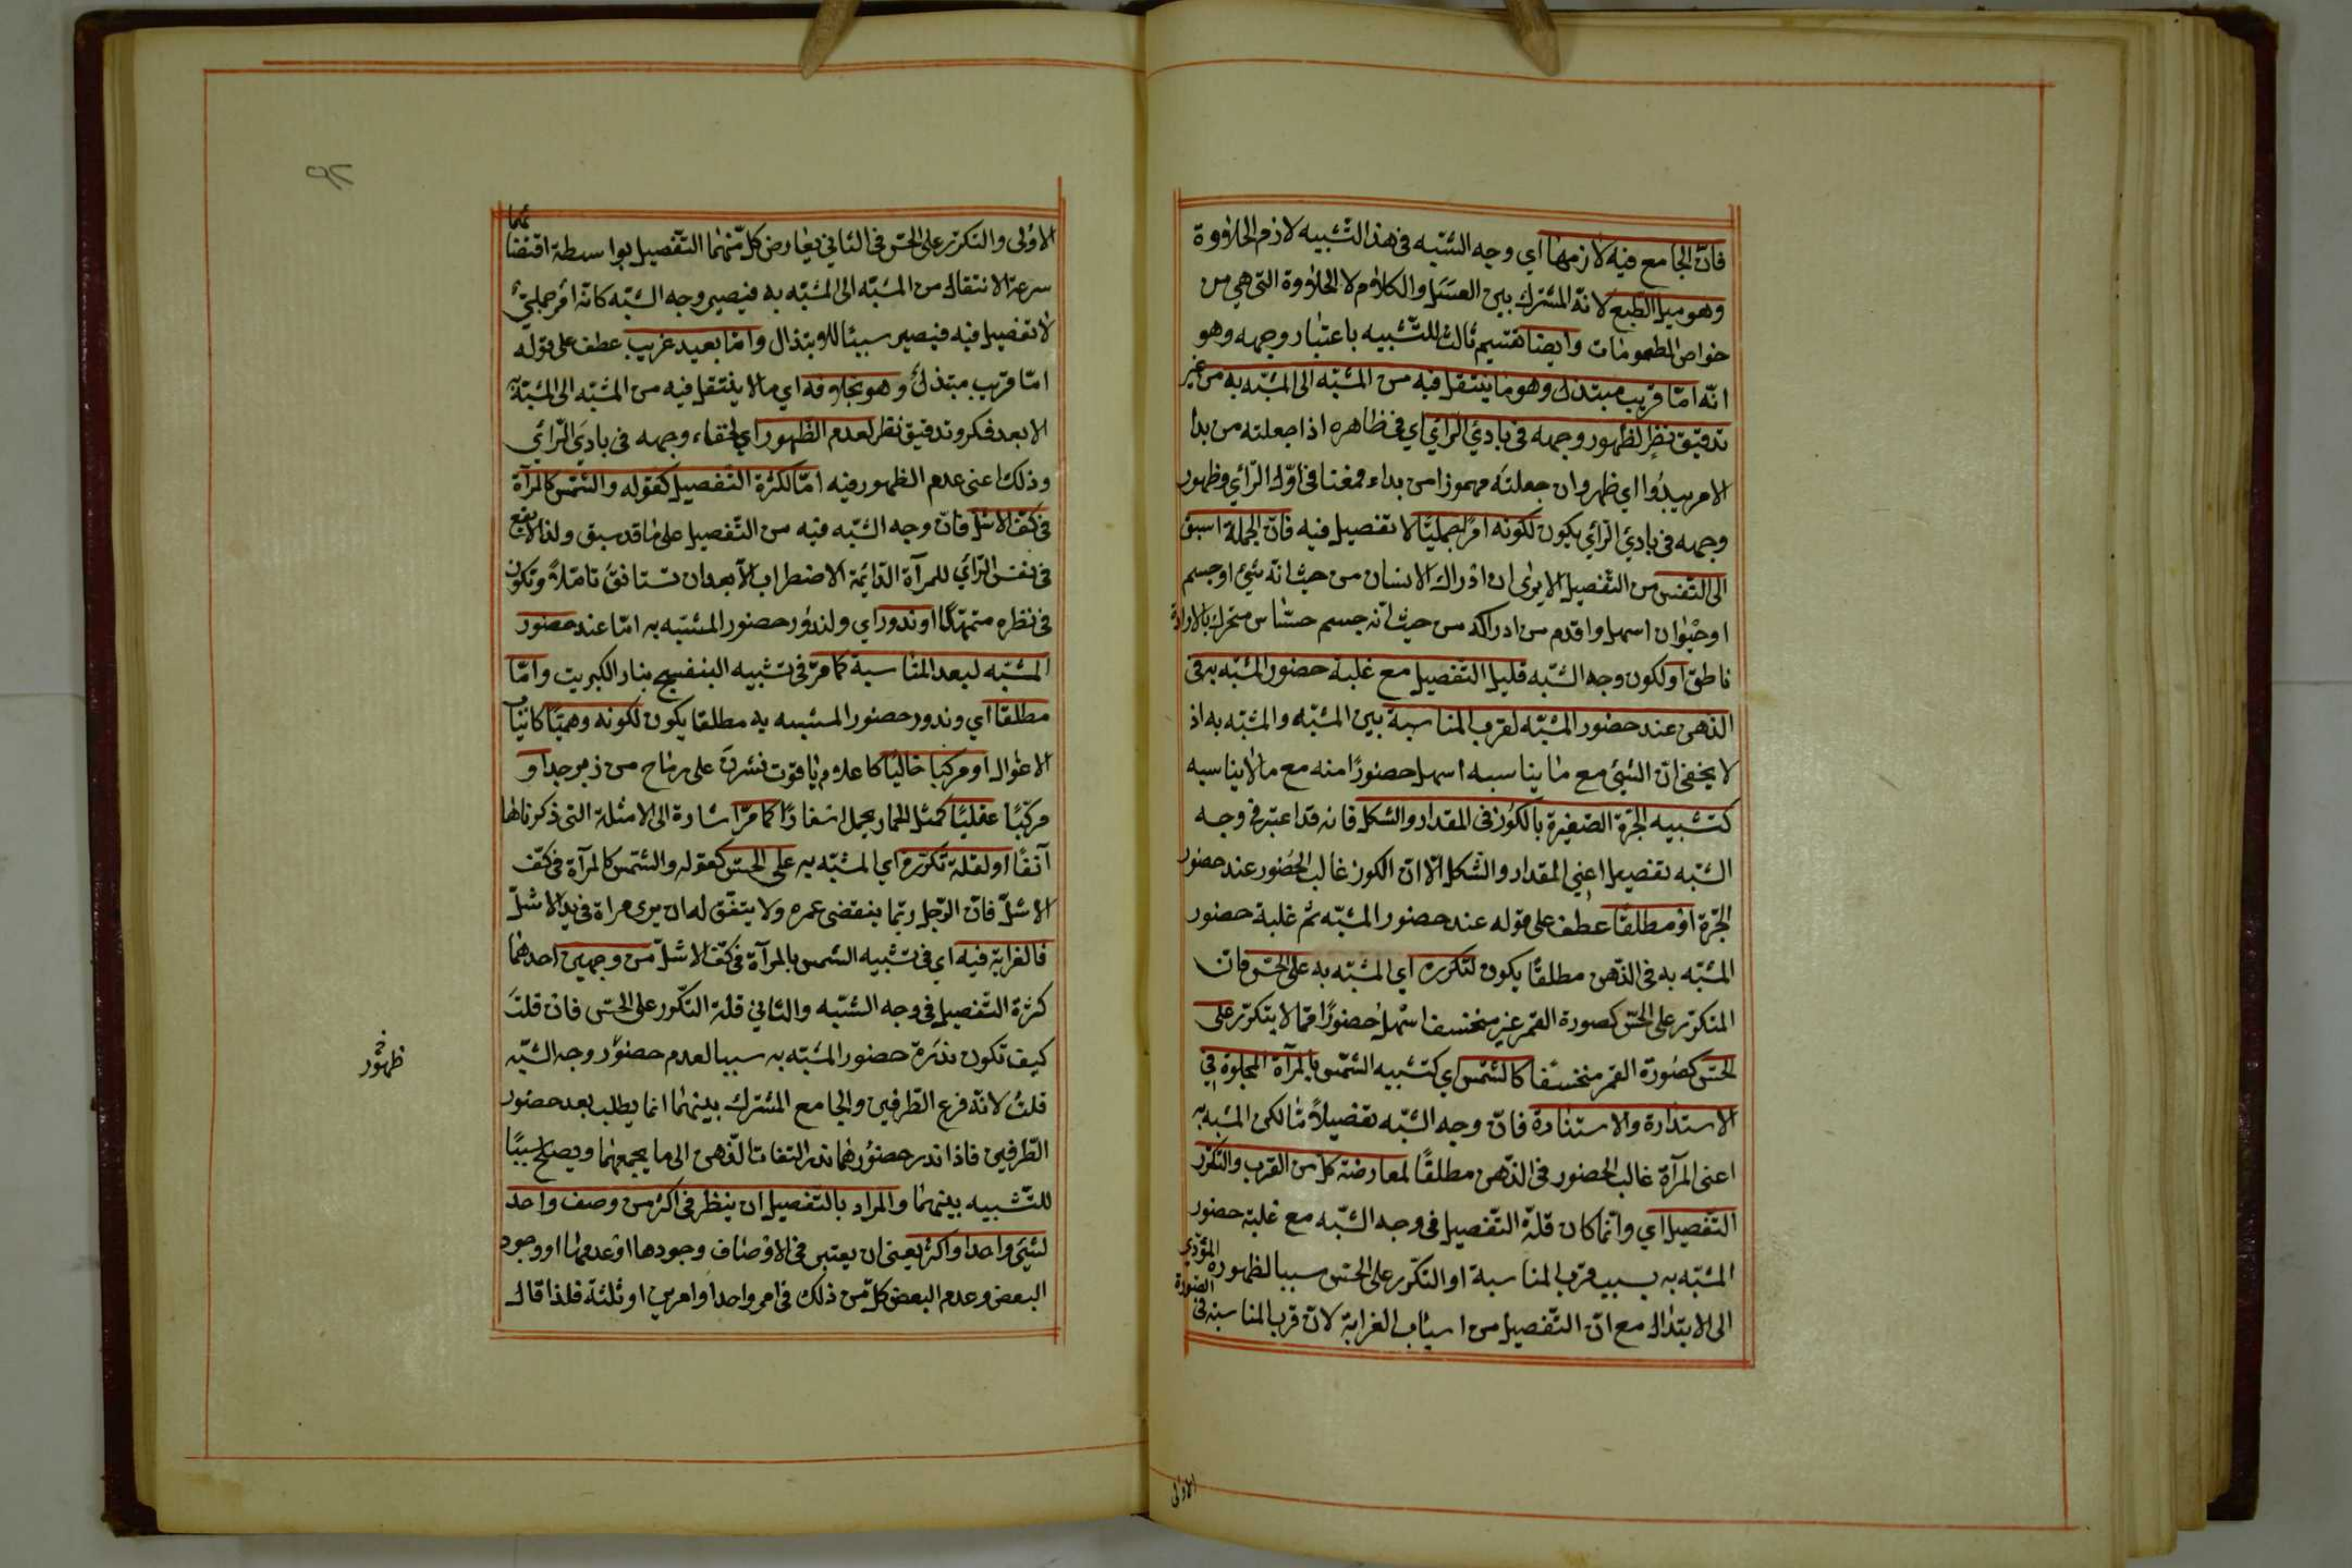 فانّ الجامع فيه لازمها اي وجه الشّبه في هذا التّشبيه لازم الحلاوة
وهو ميل الطبع لانّه المشترك بين العسَل والكلام لا الحلاوة التي هي من
خواص المطعومات وايضا تقسيم ثالث للتّشبيه باعتبار وجهه وهو
انّه امّا قريب مبتذل وهو ما ينتقل فيه من المشبّه الى المشبّه به من غير
تدقيق نظر لظهور وجهه في بادي الرّأي اي في ظاهره اذا جعلته من بدا
الامر يبدُوا اي ظهر وان جعلته مهموزا من بداء فمعنا في اوّل الرّأي وظهور
وجهه في بادي الرّأي يكون لكونه امرًا جمليًّا لا تفصيل فيه فانّ الجملة اسبق
الى النّفس من التّفصيل الا يرى ان ادراك الانسان من حيث انّه شئ او جسم
او حيوان اسهل واقدم من ادراكه من حيث انّه جسم حسّاس متحرك بالارادة
ناطق او لكون وجه الشّبه قليل التّفصيل مع غلبة حضور المشبّه به في
الذهن عند حضور المشبّه لقرب المناسبة بين المشبّه والمشبّه به اذ
لا يخفى انّ الشّئ مع ما يناسبه اسهل حضورًا منه مع ما لا يناسبه
كتشبيه الجرّة الصّغيرة بالكوز في المقدار والشكل فانه قد اعتبر في وجه
الشّبه تفصيل اعني المقدار والشّكل الّا انّ الكوز غالب الحضور عند حضور
الجرّة او مطلقًا عطف على قوله عند حضور المشبّه ثم غلبة حضور
المشبّه به في الذّهن مطلقًا يكون لتكرره اي المشبّه به على الحسّ فانّ
المتكرّر على الحسّ كصورة القمر غير منخسف اسْهل حضورًا ممّا لا يتكرّر على
الحسّ كصورة القمر منخسفا كالشّمس اي كتشبيه الشّمس بالمرآة المجلوة في
الاستدارة والاستنارة فانّ وجه الشّبه تفصيلاً ما لكن المشبه به
اعنى المرآة غالب الحضور في الذّهن مطلقًا لمعارضة كل من القرب والتكرّر
التّفصيل اي وانّما كان قلّة التّفصيل في وجه الشّبه مع غلبة حضور
المشبّه به بسبب قرب المناسبة او التكرّر على الحسّ سببا لظهوره المؤدّي
الى الابتذال مع انّ التّفصيل من اسباب الغرابة لانّ قرب المناسبة في الصّورة
الاولى
الاولى والتكرّر على الحسّ في الثاني يعارض كلّ منهما التّفصيل بواسطة اقتضائهما
سرعة الانتقال من المشبّه الى المشبّه به فيصير وجه الشّبه كانّه امر جمليّ
لا تفصيل فيه فيصير سببًا للابتذال وامّا بعيد غريب عطف على قوله
امّا قريب مبتذل وهو بخلافه اي ما لا ينتقل فيه من المشبّه الى المشبّه به
الا بعد فكر وتدقيق نظر لعدم الظهور اي لخفاء وجهه في بادي الرّأي
وذلك اعنى عدم الظهور فيه امّا لكثرة التّفصيل كقوله والشّمس كالمرآة
في كفّ الاشلّ فانّ وجه الشّبه فيه من التّفصيل على ما قد سبق ولذا لا يقع
في نفس الرّائي للمرآة الدّائمة الاضطراب الّا بعد ان تستانف تامّلاً وتكون
في نظره متمهّلًا او ندور اي ولندور حضور المشبّه به امّا عند حضور
المشبّه لبعد المناسبة كما مرّ في تشبيه البنفسج بنار الكبريت وامّا
مطلقًا اي وندور حضور المشبه به مطلقا يكون لكونه وهميًّا كانياب
الاغوال او مركبًا خياليًا كاعلام ياقوت نشرن على رماح من زبرجد او
مركّبًا عقليًّا كمثل الحمار يحمل اسفارًا كما مرّ اشارة الى الامثلة التي ذكرناها
آنفًا او لقلّة تكرّره اي المشبّه به على الحسّ كقوله والشّمس كالمرآة في كفّ
الاشلّ فانّ الرّجل ربّما ينقضى عمره ولا يتفّق له ان يرى مرآة في يد الاشلّ
فالغرابة فيه اي في تشبيه الشّمس بالمرآة في كفّ الاشلّ من وجهين احدهما
كثرة التّفصيل في وجه الشّبه والثّاني قلّة التّكرر على الحسّ فان قلتَ
كيف تكون ندرة حضور المشبّه به سببا لعدم حضوُر وجه الشّبه
ظهوُر خ
قلتُ لانّه فرع الطّرفين والجامع المشترك بينهما انما يطلب بعد حضور
الطّرفين فاذا ندر حضوُرهما ندر التفات الذّهن الى ما يجمعهما ويصلح سببًا
للتّشبيه بينهما والمراد بالتّفصيل ان ينظر في اكثر من وصف واحد
لشئ واحد او اكثر يعنى ان يعتبر في الاوصاف وجودها او عدمها او وجود
البعض وعدم البعض كلّ من ذلك في امر واحد او امرين او ثلثة فلذا قال